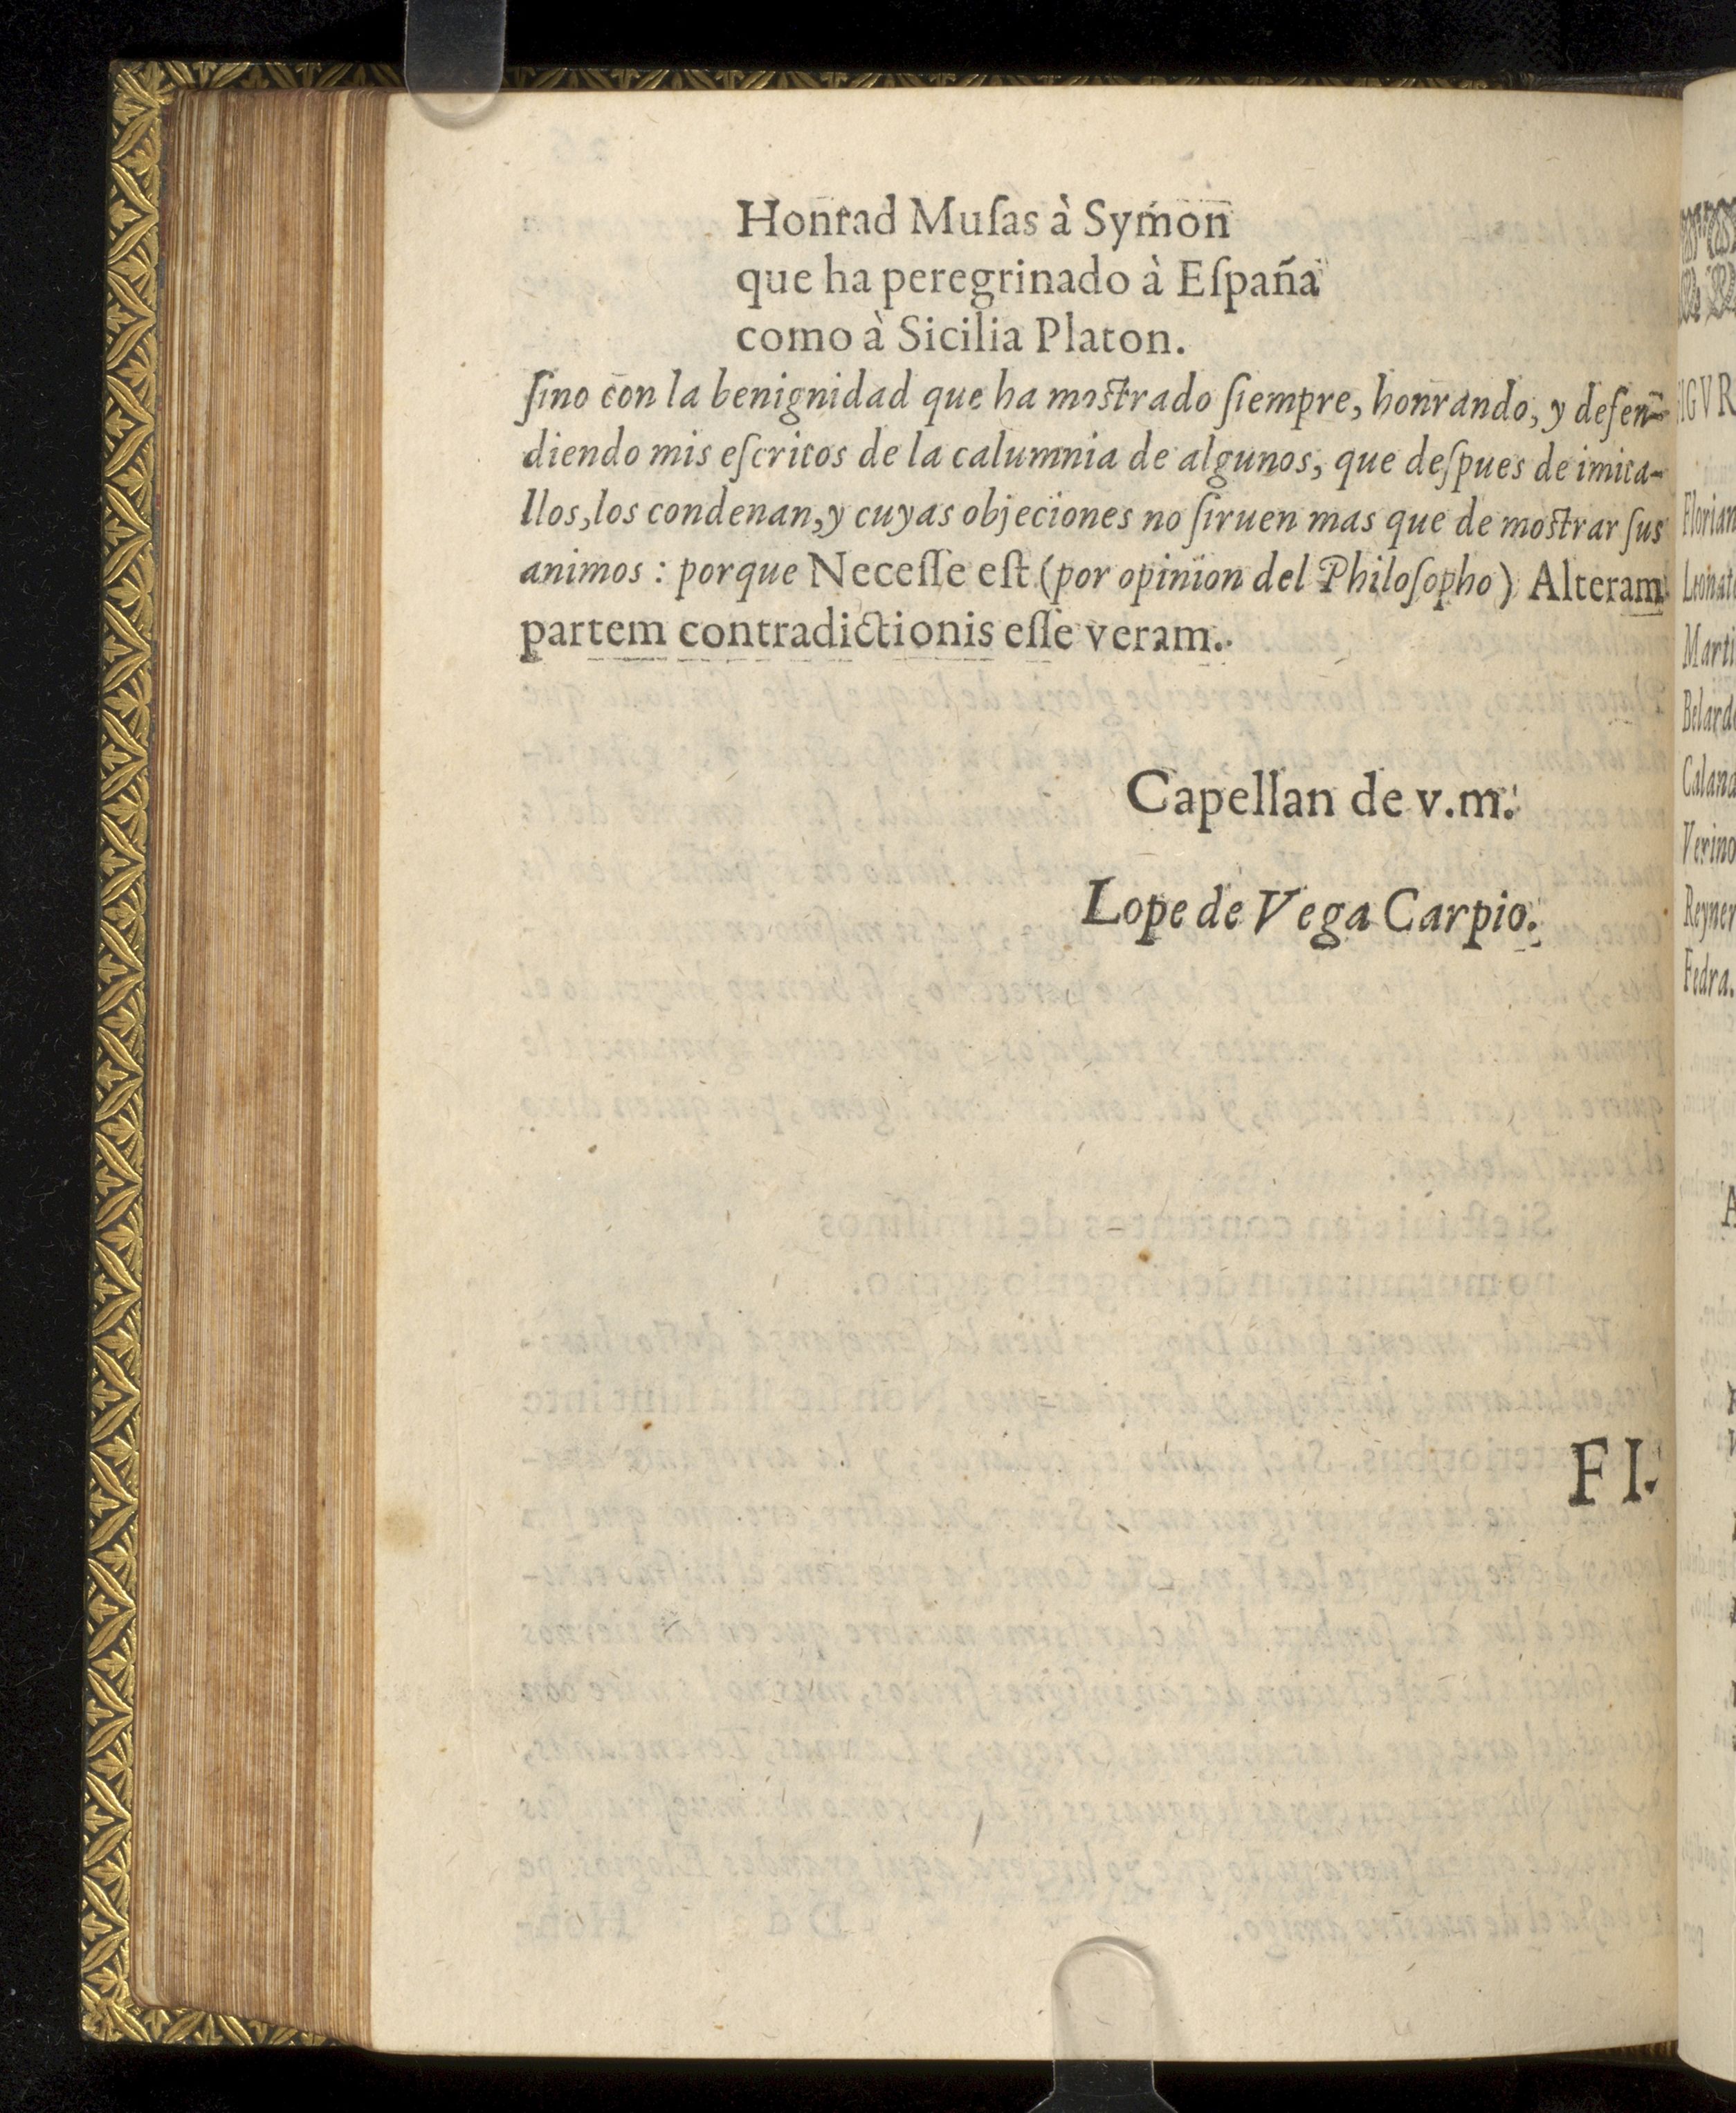 Honrad Muſas à Symon
que ha peregrinado à Eſpaña
como à Sicilia Platon.
ſino con la benignidad que ha mostrado ſiempre, honrando, y defen-
diendo mis eſcritos de la calumnia de algunos, que deſpues de imita-
llos, los condenan, y cuyas objeciones no ſiruen mas que de mostrar ſus
animos: porque Neceſſe eſt (por opinion del Philoſopho) Alteram
partem contradictionis eſſe veram.
Capellan de v.m.
Lope de Vega Carpio.
FI-
Florian
Marti
Verino
Fedra.